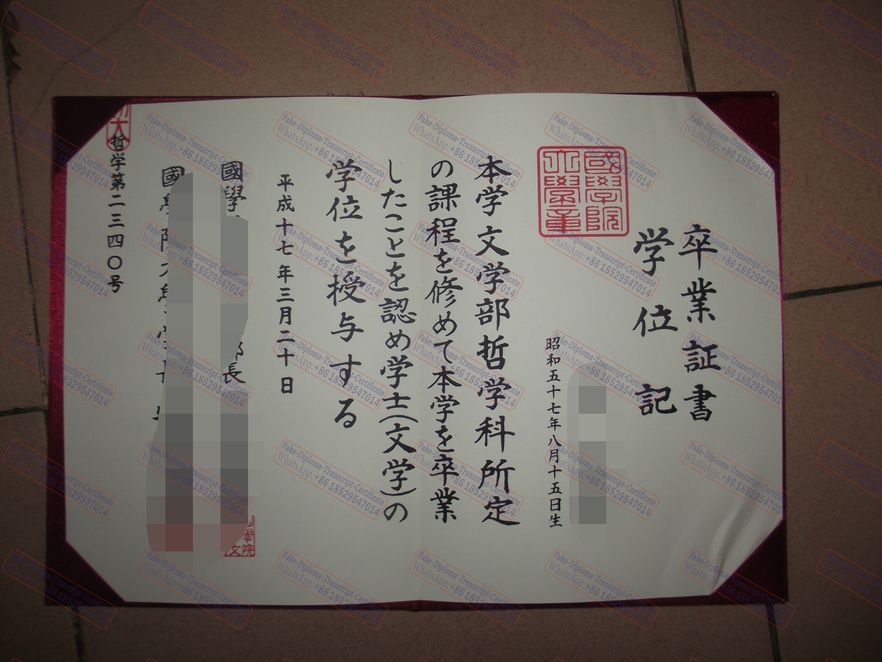 卒業証書
学位記
國學院
大學章
昭和五十七年八月十五日生
本学文学部哲学科所定
の課程を修めて本学を卒業
したことを認め学士(文学)の
学位を授与する
平成十七年三月二十日
國學 長
國
哲学第二三四〇号
Fake-Diploma-Transcript-Certificate
WhatsApp:+86 18529547014